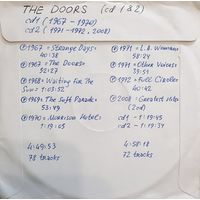 THE DOORS (cd 1&2)
cd1 (1967 - 1970)
cd2 (1971 - 1972, 2008)
℗ 1967 = Strange Days =
40:38
℗ 1967 = The Doors =
52:27
℗ 1968 = Waiting For The
Sun = 1:03:52
℗ 1969 = The Soft Parade =
53:49
℗ 1970 = Morrison Hotel =
1:19:05
4:49:53
78 tracks
℗ 1971 = L.A. Woman =
58:24
℗ 1971 = Other Voices =
39:51
℗ 1972 = Full Circle =
40:42
℗ 2008 = Greatest Hits =
(2cd)
cd1 - 1:19:45
cd2 - 1:19:34
4:58:18
72 tracks